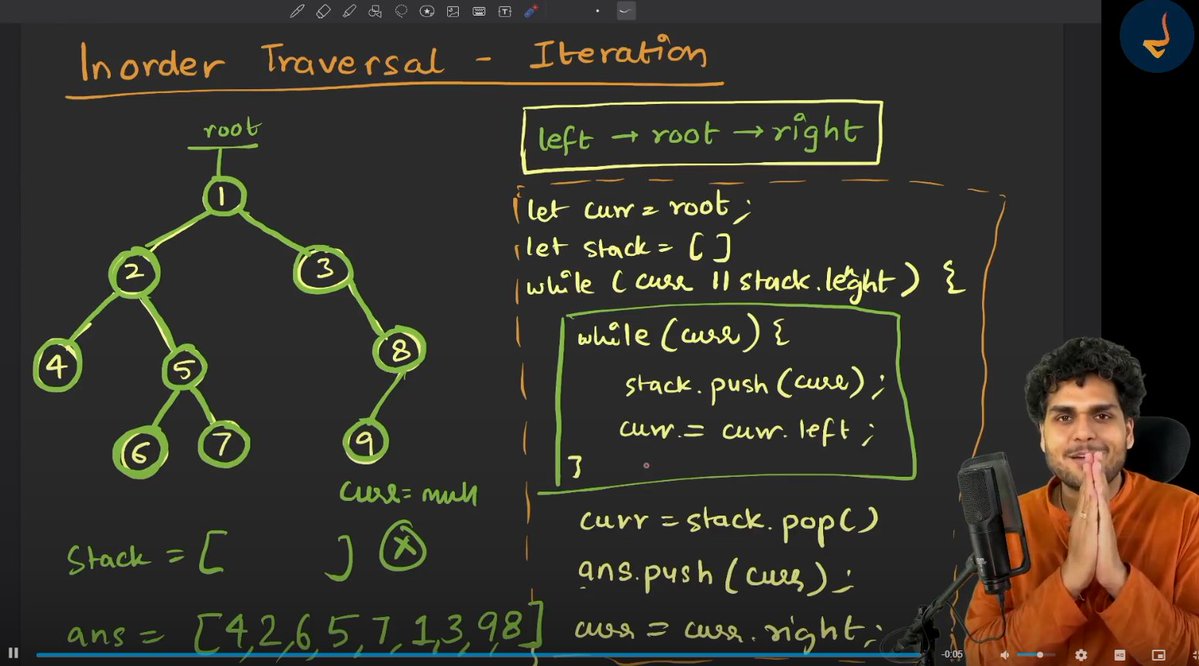 Inorder Traversal - Iteration
left → root → right
root
1
2
3
4
5
8
6
7
9
curr = null
Stack = [ ] x
ans = [4,2,6,5,7,1,3,9,8]
let curr = root;
let stack = []
while (curr || stack.leght) {
while (curr) {
stack.push(curr);
curr. = curr.left;
}
curr = stack.pop()
ans.push(curr);
curr = curr.right;
-0:05
HD